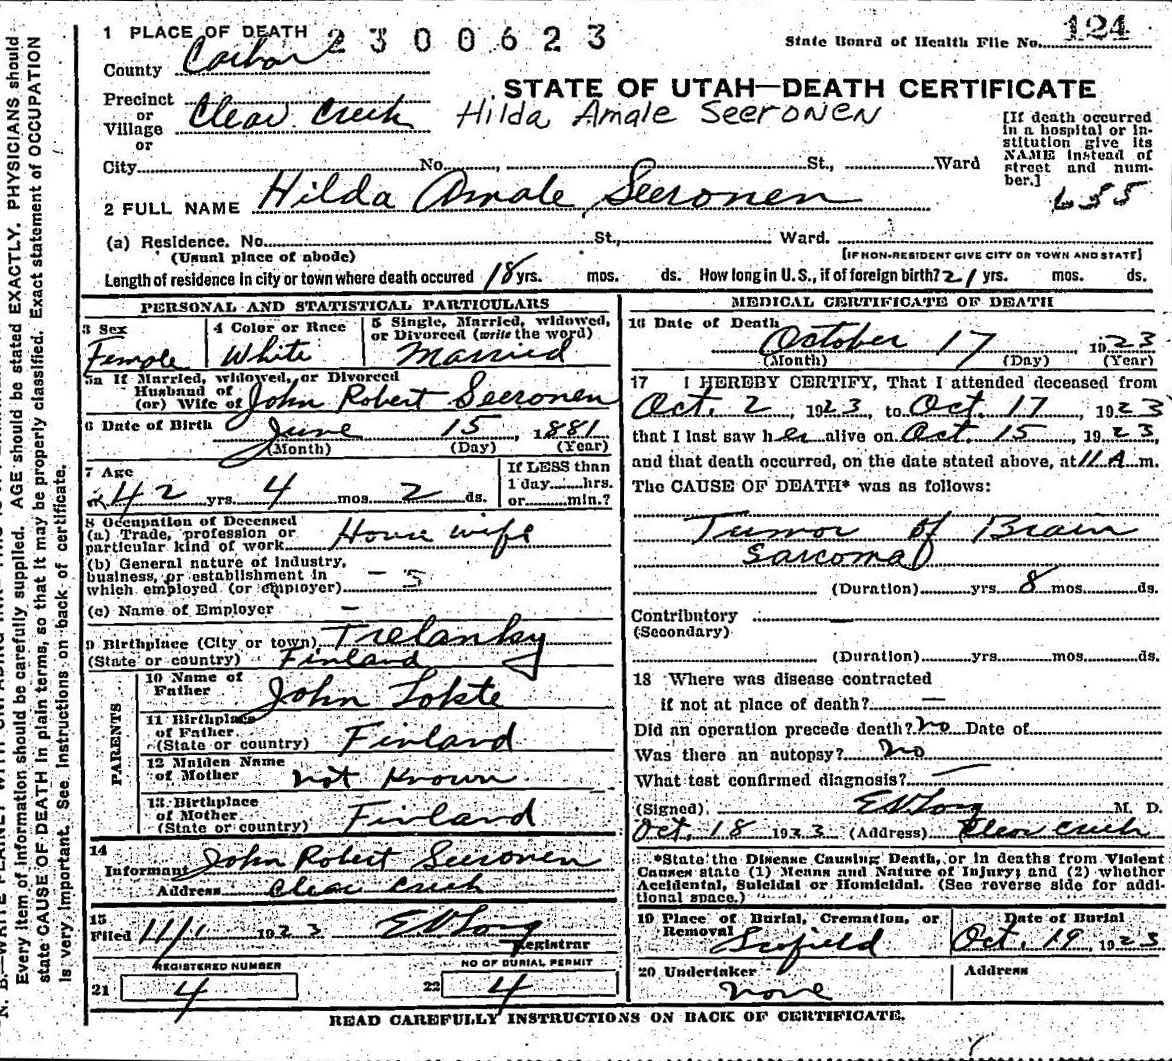 1 PLACE OF DEATH 2300623
State Board of Health File No. 124
County Carbon
STATE OF UTAH—DEATH CERTIFICATE
Precinct or Village or Clear Creek
Hilda Amale Seeronen
[If death occurred in a hospital or institution give its NAME instead of street and number.]
City No. , St., Ward
655
2 FULL NAME Hilda Amale Seeronen
(a) Residence. No. St., Ward.
(Usual place of abode) [IF NON-RESIDENT GIVE CITY OR TOWN AND STATE]
Length of residence in city or town where death occured 18 yrs. mos. ds. How long in U.S., if of foreign birth? 21 yrs. mos. ds.
PERSONAL AND STATISTICAL PARTICULARS
3 Sex Female
4 Color or Race White
5 Single, Married, widowed, or Divorced (write the word) Married
5a If Married, widowed, or Divorced
Husband of
(or) Wife of John Robert Seeronen
6 Date of Birth June 15, 1881
(Month) (Day) (Year)
7 Age
42 yrs. 4 mos. 2 ds.
If LESS than
1 day hrs.
or min.?
8 Occupation of Deceased
(a) Trade, profession or
particular kind of work House wife
(b) General nature of industry,
business, or establishment in
which employed (or employer)
(c) Name of Employer —
9 Birthplace (City or town),
(State or country) Finland
PARENTS
10 Name of Father John
11 Birthplace of Father (State or country) Finland
12 Maiden Name of Mother not Known
13 Birthplace of Mother (State or country) Finland
14
Informant John Robert Seeronen
Address Clear Creek
15
Filed 11/1 1923 E V Long
Registrar
REGISTERED NUMBER
21 4
NO OF BURIAL PERMIT
22 4
MEDICAL CERTIFICATE OF DEATH
16 Date of Death October 17 1923
(Month) (Day) (Year)
17 I HEREBY CERTIFY, That I attended deceased from
Oct. 2, 1923, to Oct. 17, 1923
that I last saw her alive on Oct. 15, 1923,
and that death occurred, on the date stated above, at 11 A m.
The CAUSE OF DEATH* was as follows:
Tumor of Brain
Sarcoma
(Duration) yrs. 8 mos. ds.
Contributory
(Secondary)
(Duration) yrs. mos. ds.
18 Where was disease contracted
if not at place of death? —
Did an operation precede death? no Date of
Was there an autopsy? no
What test confirmed diagnosis? —
(Signed) E V Long M. D.
Oct. 18 1923 (Address) Clear Creek
*State the Disease Causing Death, or in deaths from Violent
Causes state (1) Means and Nature of Injury; and (2) whether
Accidental, Suicidal or Homicidal. (See reverse side for addi-
tional space.)
19 Place of Burial, Cremation, or Removal Scofield
Date of Burial Oct. 19, 1923
20 Undertaker none
Address
READ CAREFULLY INSTRUCTIONS ON BACK OF CERTIFICATE.
Every item of information should be carefully supplied. AGE should be stated EXACTLY. PHYSICIANS should
state CAUSE OF DEATH in plain terms, so that it may be properly classified. Exact statement of OCCUPATION
is very important. See instructions on back of certificate.